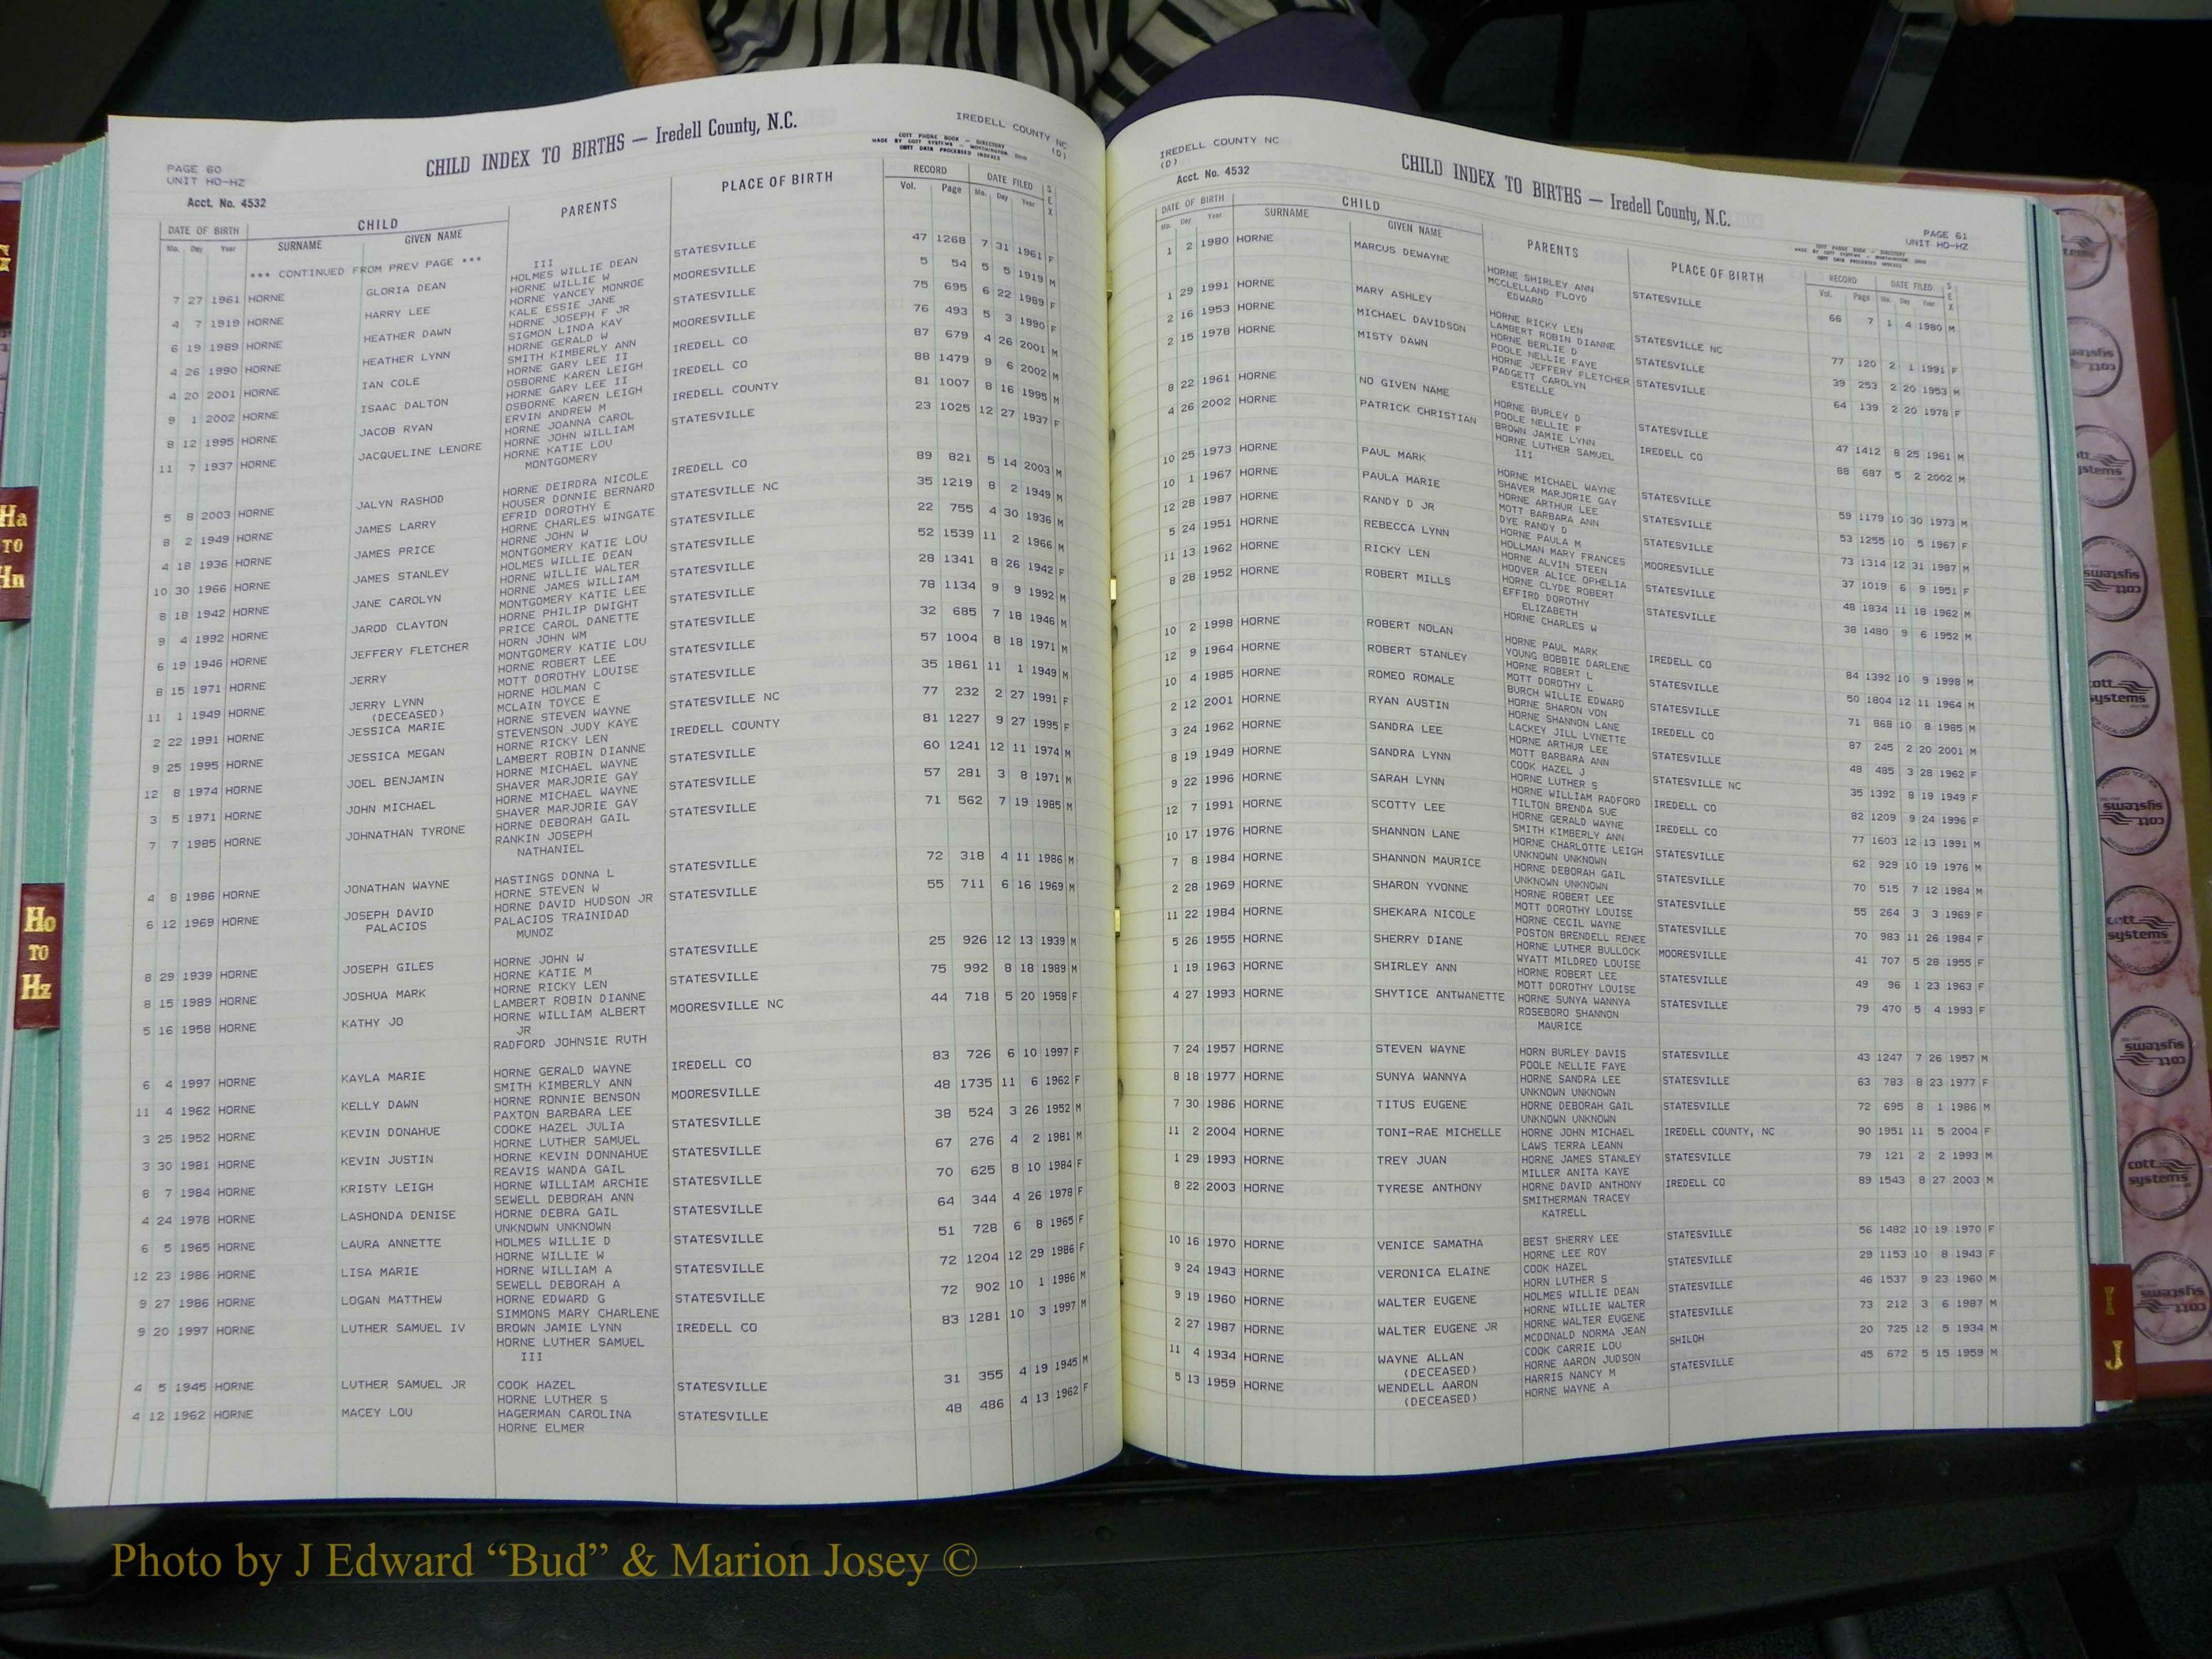 PAGE 60
UNIT HO-HZ
Acct. No. 4532
CHILD INDEX TO BIRTHS — Iredell County, N.C.
IREDELL COUNTY NC
(D)
COTT PHONE BOOK — DIRECTORY
MADE BY COTT SYSTEMS — WORTHINGTON, OHIO
COTT DATA PROCESSED INDEXES
DATE OF BIRTH CHILD PARENTS PLACE OF BIRTH RECORD DATE FILED SEX
Mo. Day Year SURNAME GIVEN NAME Vol. Page Mo. Day Year
*** CONTINUED FROM PREV PAGE ***
III
7 27 1961 HORNE GLORIA DEAN HOLMES WILLIE DEAN STATESVILLE 47 1268 7 31 1961 F
HORNE WILLIE W
4 7 1919 HORNE HARRY LEE HORNE YANCEY MONROE MOORESVILLE 5 54 5 5 1919 M
KALE ESSIE JANE
6 19 1989 HORNE HEATHER DAWN HORNE JOSEPH F JR STATESVILLE 75 695 6 22 1989 F
SIGMON LINDA KAY
4 26 1990 HORNE HEATHER LYNN HORNE GERALD W MOORESVILLE 76 493 5 3 1990 F
SMITH KIMBERLY ANN
4 20 2001 HORNE IAN COLE HORNE GARY LEE II IREDELL CO 87 679 4 26 2001 M
OSBORNE KAREN LEIGH
9 1 2002 HORNE ISAAC DALTON HORNE GARY LEE II IREDELL CO 88 1479 9 6 2002 M
OSBORNE KAREN LEIGH
8 12 1995 HORNE JACOB RYAN ERVIN ANDREW M IREDELL COUNTY 81 1007 8 16 1995 M
HORNE JOANNA CAROL
11 7 1937 HORNE JACQUELINE LENORE HORNE JOHN WILLIAM STATESVILLE 23 1025 12 27 1937 F
HORNE KATIE LOU
MONTGOMERY
5 8 2003 HORNE JALYN RASHOD HORNE DEIRDRA NICOLE IREDELL CO 89 821 5 14 2003 M
HOUSER DONNIE BERNARD
8 2 1949 HORNE JAMES LARRY EFRID DOROTHY E STATESVILLE NC 35 1219 8 2 1949 M
HORNE CHARLES WINGATE
4 18 1936 HORNE JAMES PRICE HORNE JOHN W STATESVILLE 22 755 4 30 1936 M
MONTGOMERY KATIE LOU
10 30 1966 HORNE JAMES STANLEY HOLMES WILLIE DEAN STATESVILLE 52 1539 11 2 1966 M
HORNE WILLIE WALTER
8 18 1942 HORNE JANE CAROLYN HORNE JAMES WILLIAM STATESVILLE 28 1341 8 26 1942 F
MONTGOMERY KATIE LEE
9 4 1992 HORNE JAROD CLAYTON HORNE PHILIP DWIGHT STATESVILLE 78 1134 9 9 1992 M
PRICE CAROL DANETTE
6 19 1946 HORNE JEFFERY FLETCHER HORN JOHN WM STATESVILLE 32 685 7 18 1946 M
MONTGOMERY KATIE LOU
8 15 1971 HORNE JERRY HORNE ROBERT LEE STATESVILLE 57 1004 8 18 1971 M
MOTT DOROTHY LOUISE
11 1 1949 HORNE JERRY LYNN HORNE HOLMAN C STATESVILLE 35 1861 11 1 1949 M
(DECEASED) MCLAIN TOYCE E
2 22 1991 HORNE JESSICA MARIE HORNE STEVEN WAYNE STATESVILLE NC 77 232 2 27 1991 F
STEVENSON JUDY KAYE
9 25 1995 HORNE JESSICA MEGAN HORNE RICKY LEN IREDELL COUNTY 81 1227 9 27 1995 F
LAMBERT ROBIN DIANNE
12 8 1974 HORNE JOEL BENJAMIN HORNE MICHAEL WAYNE STATESVILLE 60 1241 12 11 1974 M
SHAVER MARJORIE GAY
3 5 1971 HORNE JOHN MICHAEL HORNE MICHAEL WAYNE STATESVILLE 57 281 3 8 1971 M
SHAVER MARJORIE GAY
7 7 1985 HORNE JOHNATHAN TYRONE HORNE DEBORAH GAIL STATESVILLE 71 562 7 19 1985 M
RANKIN JOSEPH
NATHANIEL
4 8 1986 HORNE JONATHAN WAYNE HASTINGS DONNA L STATESVILLE 72 318 4 11 1986 M
HORNE STEVEN W
6 12 1969 HORNE JOSEPH DAVID HORNE DAVID HUDSON JR STATESVILLE 55 711 6 16 1969 M
PALACIOS PALACIOS TRAINIDAD
MUNOZ
8 29 1939 HORNE JOSEPH GILES HORNE JOHN W STATESVILLE 25 926 12 13 1939 M
HORNE KATIE M
8 15 1989 HORNE JOSHUA MARK HORNE RICKY LEN STATESVILLE 75 992 8 18 1989 M
LAMBERT ROBIN DIANNE
5 16 1958 HORNE KATHY JO HORNE WILLIAM ALBERT MOORESVILLE NC 44 718 5 20 1958 F
JR
RADFORD JOHNSIE RUTH
6 4 1997 HORNE KAYLA MARIE HORNE GERALD WAYNE IREDELL CO 83 726 6 10 1997 F
SMITH KIMBERLY ANN
11 4 1962 HORNE KELLY DAWN HORNE RONNIE BENSON MOORESVILLE 48 1735 11 6 1962 F
PAXTON BARBARA LEE
3 25 1952 HORNE KEVIN DONAHUE COOKE HAZEL JULIA STATESVILLE 38 524 3 26 1952 M
HORNE LUTHER SAMUEL
3 30 1981 HORNE KEVIN JUSTIN HORNE KEVIN DONNAHUE STATESVILLE 67 276 4 2 1981 M
REAVIS WANDA GAIL
8 7 1984 HORNE KRISTY LEIGH HORNE WILLIAM ARCHIE STATESVILLE 70 625 8 10 1984 F
SEWELL DEBORAH ANN
4 24 1978 HORNE LASHONDA DENISE HORNE DEBRA GAIL STATESVILLE 64 344 4 26 1978 F
UNKNOWN UNKNOWN
6 5 1965 HORNE LAURA ANNETTE HOLMES WILLIE D STATESVILLE 51 728 6 8 1965 F
HORNE WILLIE W
12 23 1986 HORNE LISA MARIE HORNE WILLIAM A STATESVILLE 72 1204 12 29 1986 F
SEWELL DEBORAH A
9 27 1986 HORNE LOGAN MATTHEW HORNE EDWARD G STATESVILLE 72 902 10 1 1986 M
SIMMONS MARY CHARLENE
9 20 1997 HORNE LUTHER SAMUEL IV BROWN JAMIE LYNN IREDELL CO 83 1281 10 3 1997 M
HORNE LUTHER SAMUEL
III
4 5 1945 HORNE LUTHER SAMUEL JR COOK HAZEL STATESVILLE 31 355 4 19 1945 M
HORNE LUTHER S
4 12 1962 HORNE MACEY LOU HAGERMAN CAROLINA STATESVILLE 48 486 4 13 1962 F
HORNE ELMER
IREDELL COUNTY NC
(D)
Acct. No. 4532
CHILD INDEX TO BIRTHS — Iredell County, N.C.
PAGE 61
UNIT HO-HZ
COTT PHONE BOOK — DIRECTORY
MADE BY COTT SYSTEMS — WORTHINGTON, OHIO
COTT DATA PROCESSED INDEXES
DATE OF BIRTH CHILD PARENTS PLACE OF BIRTH RECORD DATE FILED SEX
Mo. Day Year SURNAME GIVEN NAME Vol. Page Mo. Day Year
1 2 1980 HORNE MARCUS DEWAYNE HORNE SHIRLEY ANN STATESVILLE 66 7 1 4 1980 M
MCCLELLAND FLOYD
EDWARD
1 29 1991 HORNE MARY ASHLEY HORNE RICKY LEN STATESVILLE NC 77 120 2 1 1991 F
LAMBERT ROBIN DIANNE
2 16 1953 HORNE MICHAEL DAVIDSON HORNE BERLIE D STATESVILLE 39 253 2 20 1953 M
POOLE NELLIE FAYE
2 15 1978 HORNE MISTY DAWN HORNE JEFFERY FLETCHER STATESVILLE 64 139 2 20 1978 F
PADGETT CAROLYN
ESTELLE
8 22 1961 HORNE NO GIVEN NAME HORNE BURLEY D STATESVILLE 47 1412 8 25 1961 M
POOLE NELLIE F
4 26 2002 HORNE PATRICK CHRISTIAN BROWN JAMIE LYNN IREDELL CO 88 687 5 2 2002 M
HORNE LUTHER SAMUEL
III
10 25 1973 HORNE PAUL MARK HORNE MICHAEL WAYNE STATESVILLE 59 1179 10 30 1973 M
SHAVER MARJORIE GAY
10 1 1967 HORNE PAULA MARIE HORNE ARTHUR LEE STATESVILLE 53 1255 10 5 1967 F
MOTT BARBARA ANN
12 28 1987 HORNE RANDY D JR DYE RANDY D STATESVILLE 73 1314 12 31 1987 M
HORNE PAULA M
5 24 1951 HORNE REBECCA LYNN HOLLMAN MARY FRANCES MOORESVILLE 37 1019 6 9 1951 F
HORNE ALVIN STEEN
11 13 1962 HORNE RICKY LEN HOOVER ALICE OPHELIA STATESVILLE 48 1834 11 18 1962 M
HORNE CLYDE ROBERT
8 28 1952 HORNE ROBERT MILLS EFFIRD DOROTHY STATESVILLE 38 1480 9 6 1952 M
ELIZABETH
HORNE CHARLES W
10 2 1998 HORNE ROBERT NOLAN HORNE PAUL MARK IREDELL CO 84 1392 10 9 1998 M
YOUNG BOBBIE DARLENE
12 9 1964 HORNE ROBERT STANLEY HORNE ROBERT L STATESVILLE 50 1804 12 11 1964 M
MOTT DOROTHY L
10 4 1985 HORNE ROMEO ROMALE BURCH WILLIE EDWARD STATESVILLE 71 868 10 8 1985 M
HORNE SHARON VON
2 12 2001 HORNE RYAN AUSTIN HORNE SHANNON LANE IREDELL CO 87 245 2 20 2001 M
LACKEY JILL LYNETTE
3 24 1962 HORNE SANDRA LEE HORNE ARTHUR LEE STATESVILLE 48 485 3 28 1962 F
MOTT BARBARA ANN
8 19 1949 HORNE SANDRA LYNN COOK HAZEL J STATESVILLE NC 35 1392 8 19 1949 F
HORNE LUTHER S
9 22 1996 HORNE SARAH LYNN HORNE WILLIAM RADFORD IREDELL CO 82 1209 9 24 1996 F
TILTON BRENDA SUE
12 7 1991 HORNE SCOTTY LEE HORNE GERALD WAYNE IREDELL CO 77 1603 12 13 1991 M
SMITH KIMBERLY ANN
10 17 1976 HORNE SHANNON LANE HORNE CHARLOTTE LEIGH STATESVILLE 62 929 10 19 1976 M
UNKNOWN UNKNOWN
7 8 1984 HORNE SHANNON MAURICE HORNE DEBORAH GAIL STATESVILLE 70 515 7 12 1984 M
UNKNOWN UNKNOWN
2 28 1969 HORNE SHARON YVONNE HORNE ROBERT LEE STATESVILLE 55 264 3 3 1969 F
MOTT DOROTHY LOUISE
11 22 1984 HORNE SHEKARA NICOLE HORNE CECIL WAYNE STATESVILLE 70 983 11 26 1984 F
POSTON BRENDELL RENEE
5 26 1955 HORNE SHERRY DIANE HORNE LUTHER BULLOCK MOORESVILLE 41 707 5 28 1955 F
WYATT MILDRED LOUISE
1 19 1963 HORNE SHIRLEY ANN HORNE ROBERT LEE STATESVILLE 49 96 1 23 1963 F
MOTT DOROTHY LOUISE
4 27 1993 HORNE SHYTICE ANTWANETTE HORNE SUNYA WANNYA STATESVILLE 79 470 5 4 1993 F
ROSEBORO SHANNON
MAURICE
7 24 1957 HORNE STEVEN WAYNE HORN BURLEY DAVIS STATESVILLE 43 1247 7 26 1957 M
POOLE NELLIE FAYE
8 18 1977 HORNE SUNYA WANNYA HORNE SANDRA LEE STATESVILLE 63 783 8 23 1977 F
UNKNOWN UNKNOWN
7 30 1986 HORNE TITUS EUGENE HORNE DEBORAH GAIL STATESVILLE 72 695 8 1 1986 M
UNKNOWN UNKNOWN
11 2 2004 HORNE TONI-RAE MICHELLE HORNE JOHN MICHAEL IREDELL COUNTY, NC 90 1951 11 5 2004 F
LAWS TERRA LEANN
1 29 1993 HORNE TREY JUAN HORNE JAMES STANLEY STATESVILLE 79 121 2 2 1993 M
MILLER ANITA KAYE
8 22 2003 HORNE TYRESE ANTHONY HORNE DAVID ANTHONY IREDELL CO 89 1543 8 27 2003 M
SMITHERMAN TRACEY
KATRELL
10 16 1970 HORNE VENICE SAMATHA BEST SHERRY LEE STATESVILLE 56 1482 10 19 1970 F
HORNE LEE ROY
9 24 1943 HORNE VERONICA ELAINE COOK HAZEL STATESVILLE 29 1153 10 8 1943 F
HORN LUTHER S
9 19 1960 HORNE WALTER EUGENE HOLMES WILLIE DEAN STATESVILLE 46 1537 9 23 1960 M
HORNE WILLIE WALTER
2 27 1987 HORNE WALTER EUGENE JR HORNE WALTER EUGENE STATESVILLE 73 212 3 6 1987 M
MCDONALD NORMA JEAN
11 4 1934 HORNE WAYNE ALLAN COOK CARRIE LOU SHILOH 20 725 12 5 1934 M
(DECEASED) HORNE AARON JUDSON
5 13 1959 HORNE WENDELL AARON HARRIS NANCY M STATESVILLE 45 672 5 15 1959 M
(DECEASED) HORNE WAYNE A
Ha
TO
Hn
Ho
TO
Hz
I
J
cott
systems
Photo by J Edward “Bud” & Marion Josey ©